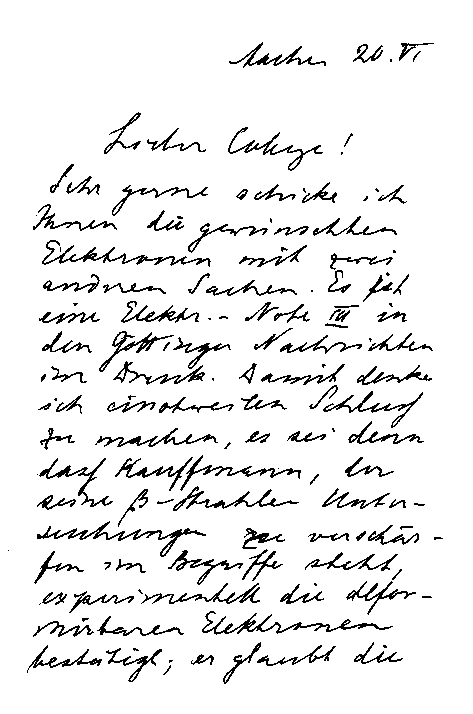 Aachen 20. VI
Lieber College!
Sehr gerne schicke ich
Ihnen die gewünschten
Elektronen mit zwei
andren Sachen. Es ist
eine Elektr.- Note III in
den Göttinger Nachrichten
im Druck. Damit denke
ich einstweilen Schluß
zu machen, es sei denn
daß Kauffmann, der
seine β-Strahlen Unter-
suchungen zu verschär-
fen im Begriffe steht,
experimentell die defor-
mirbaren Elektronen
bestätigt; er glaubt die